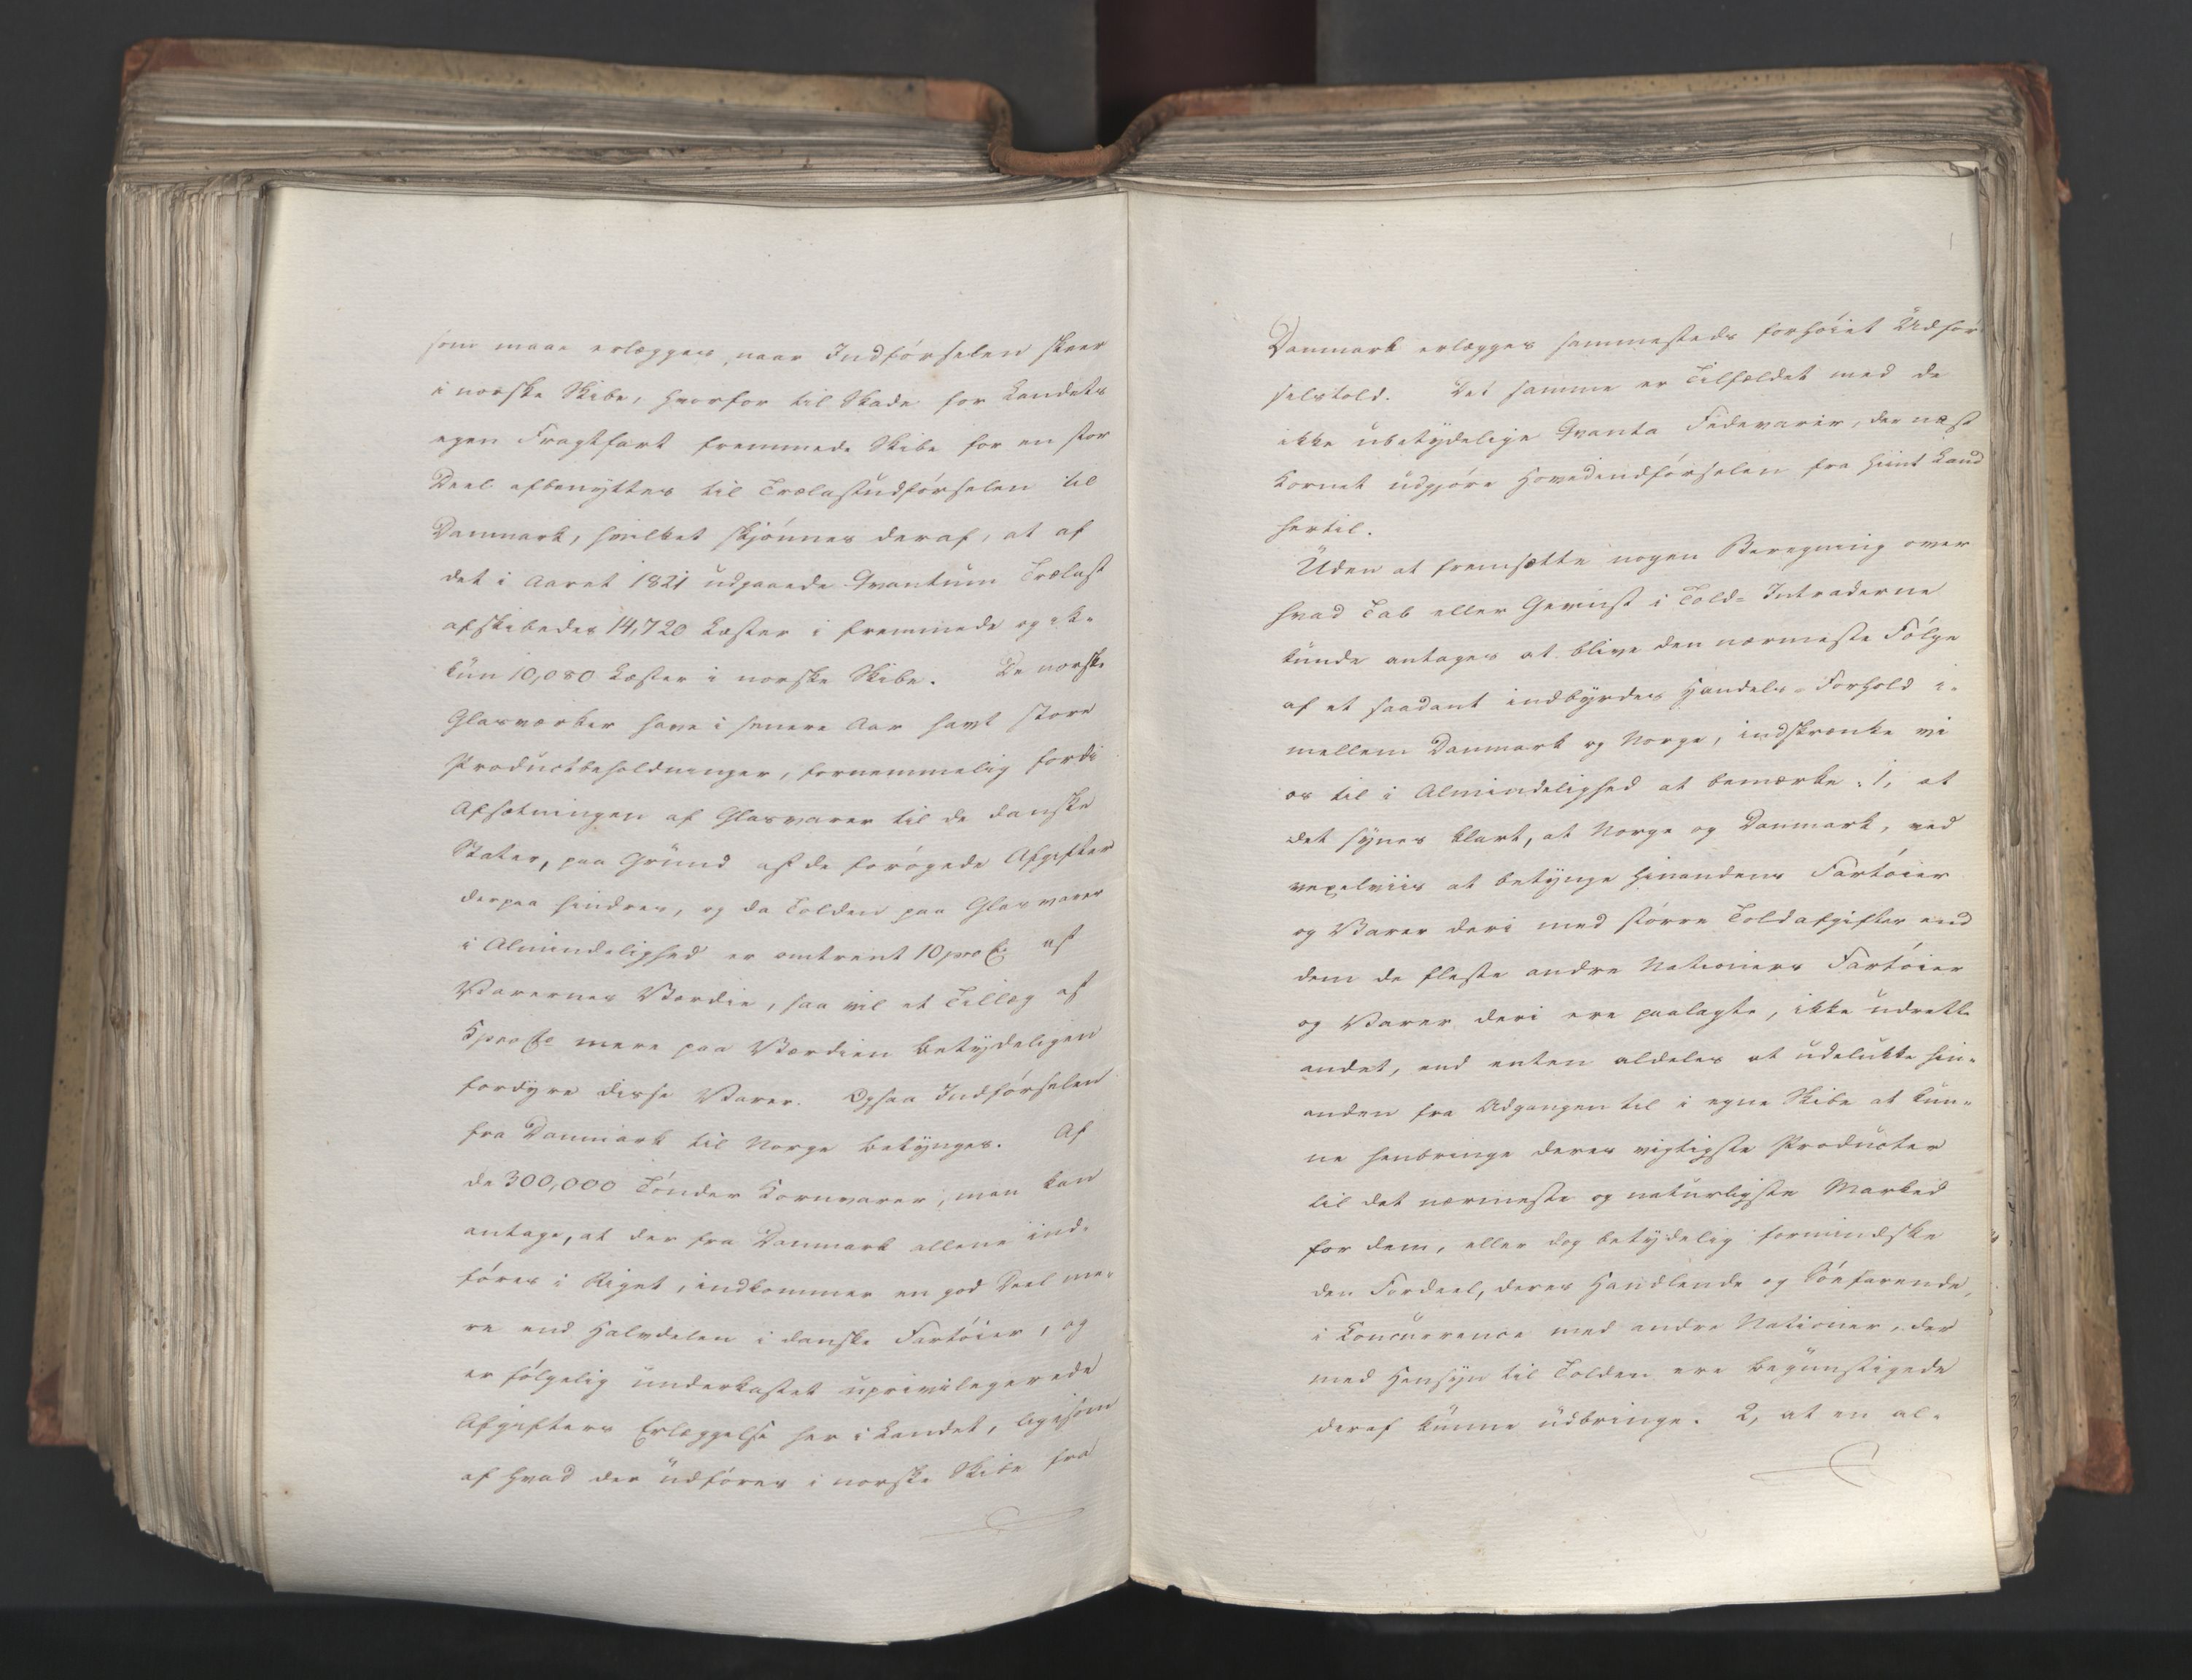 som maae erlægges, naar Indførselen skeer
i norske Skibe, hvorfor til Skade for Landets
egen Fragtfart fremmede Skibe for en stor
Deel afbenyttes til Trælastudførselen til
Danmark, hvilket skjønnes deraf, at af
det i Aaret 1821 udgaaede Qvantum Trælast
afskibedes 14,720 Læster i fremmede og ik-
kun 10,080 Læster i norske Skibe. De norske
Glasværker have i senere Aar havt store
Productbeholdninger, fornemmelig fordi
Afsætningen af Glasvarer til de danske
Stater, paa Grund af de forøgede Afgifter
derpaa hindres, og da Tolden paa Glasvarer
i Almindelighed er omtrent 10 pro C. af
Varernes Værdie, saa vil et Tillæg af
5 pro Cto mere paa Værdien betydeligen
fordyre disse Varer. Ogsaa Indførselen
fra Danmark til Norge betynges. Af
de 300,000 Tønder Kornvarer, man kan
antage, at der fra Danmark allene ind-
føres i Riget, indkommer en god Deel me-
re end Halvdelen i danske Fartøier, og
er følgelig underkastet uprivilegerede
Afgifters Erlæggelse her i Landet, ligesom
af hvad der udføres i norske Skibe fra
Danmark erlægges sammesteds forhøiet Udfør-
selstold. Det samme er Tilfældet med de
ikke ubetydelige Qvanta Fedevarer, der næst
Kornet udgjøre Hovedindførselen fra hiint Land
hertil.
Uden at fremsætte nogen Beregning over
hvad Tab eller Gevinst i Told-Intraderne
kunde antages at blive den nærmeste Følge
af et saadant indbyrdes Handels-Forhold i-
mellem Danmark og Norge, indskrænke vi
os til i Almindelighed at bemærke: 1, at
det synes klart, at Norge og Danmark, ved
vexelviis at betynge hinandens Fartøier
og Varer deri med større Toldafgifter end
dem de fleste andre Nationers Fartøier
og Varer deri ere paalagte, ikke udrette
andet, end enten aldeles at udelukke hin-
anden fra Adgangen til i egne Skibe at kun-
ne henbringe deres vigtigste Producter
til det nærmeste og naturligste Marked
for dem, eller dog betydelig formindske
den Fordeel, deres Handlende og Søefarende,
i Concurrence med andre Nationer, der
med Hensyn til Tolden ere begunstigede
deraf kunne udbringe. 2, at en al-